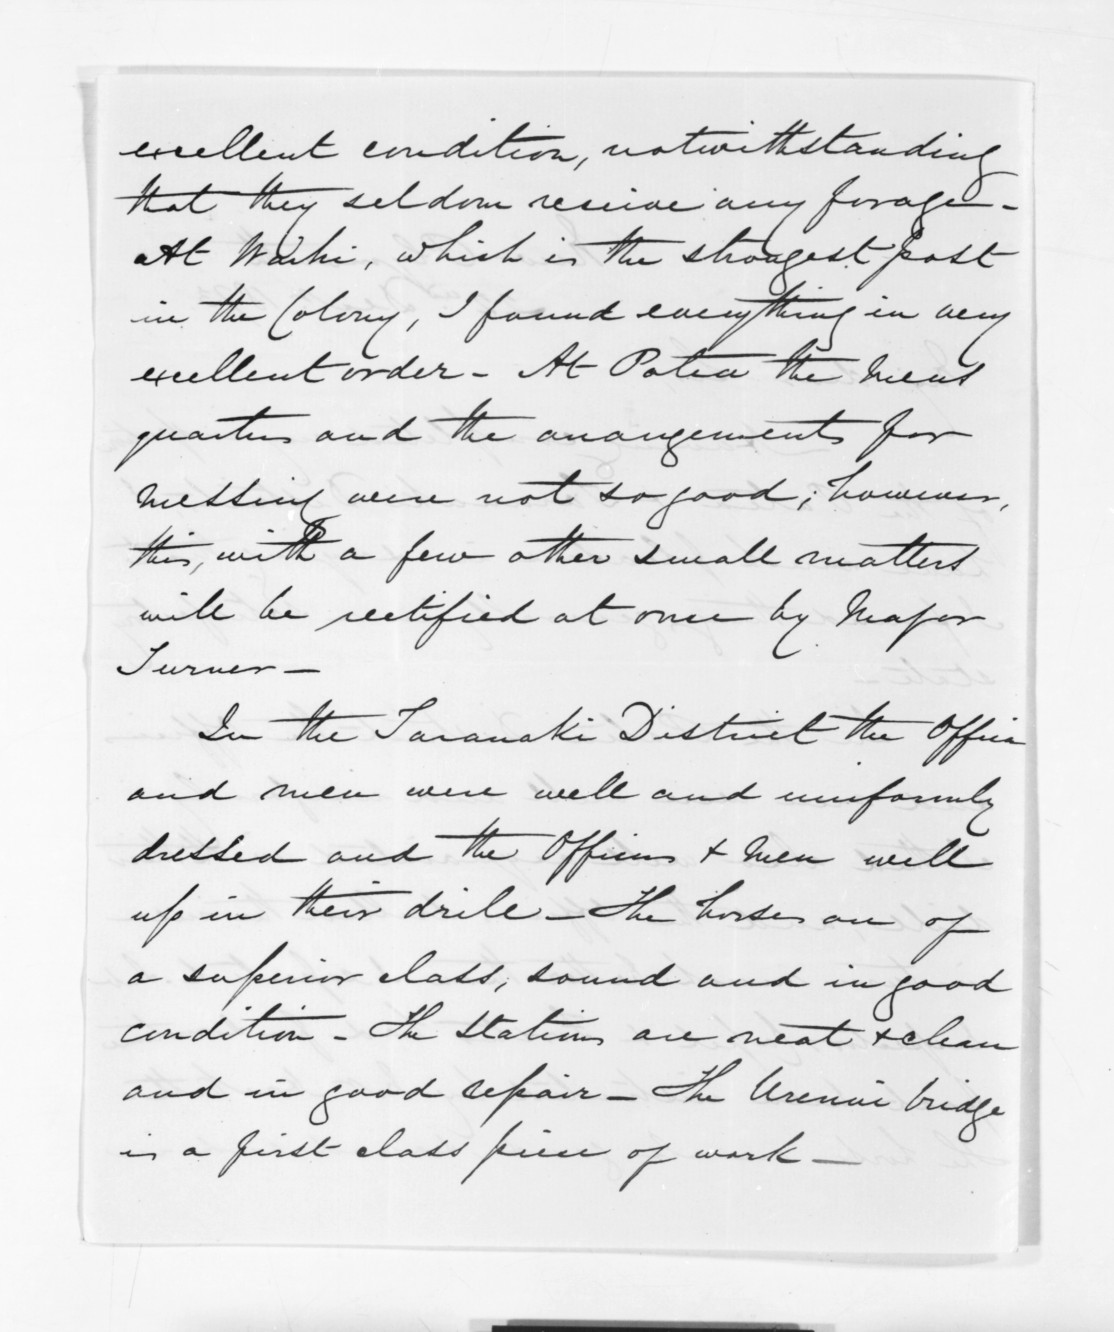 excellent condition, notwithstanding
that they seldom receive any forage -
At Waihi, which is the strongest post
in the Colony, I found everything in very
excellent order - At Patea the mens
quarters and the arrangements for
messing were not so good; however,
this, with a few other small matters
will be rectified at once by Major
Turner -
In the Taranaki District the Officers
and men were well and uniformly
dressed and the Officers & men well
up in their drill - The horses are of
a superior class, sound and in good
condition - The Stations are neat & clean
and in good repair - The Urenui bridge
is a first class piece of work -